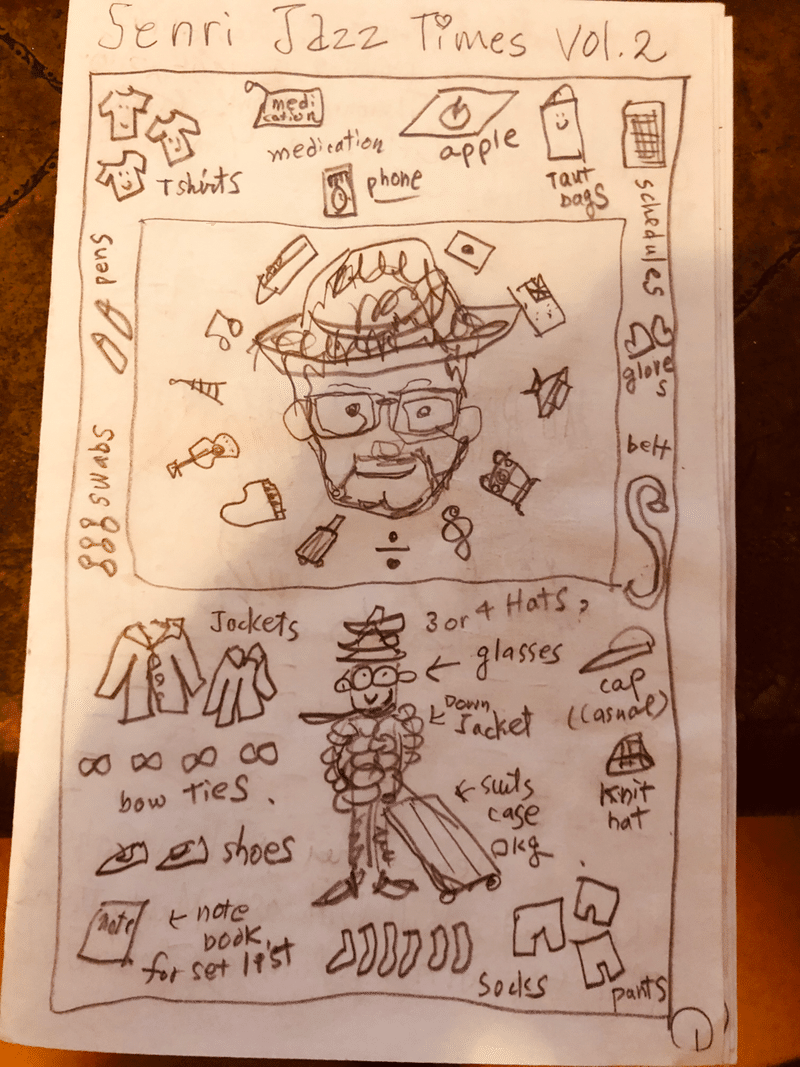 Senri Jazz Times Vol.2
medi
cation
medication
apple
Taut
bags
schedules
T shirts
phone
pens
glove
s
swabs
belt
Jackets
3 or 4 Hats,
glasses
cap
(casual)
Down
Jacket
bow ties.
suits
case
pkg
Knit
hat
shoes
note
note
book,
for set list
socks
pants
1